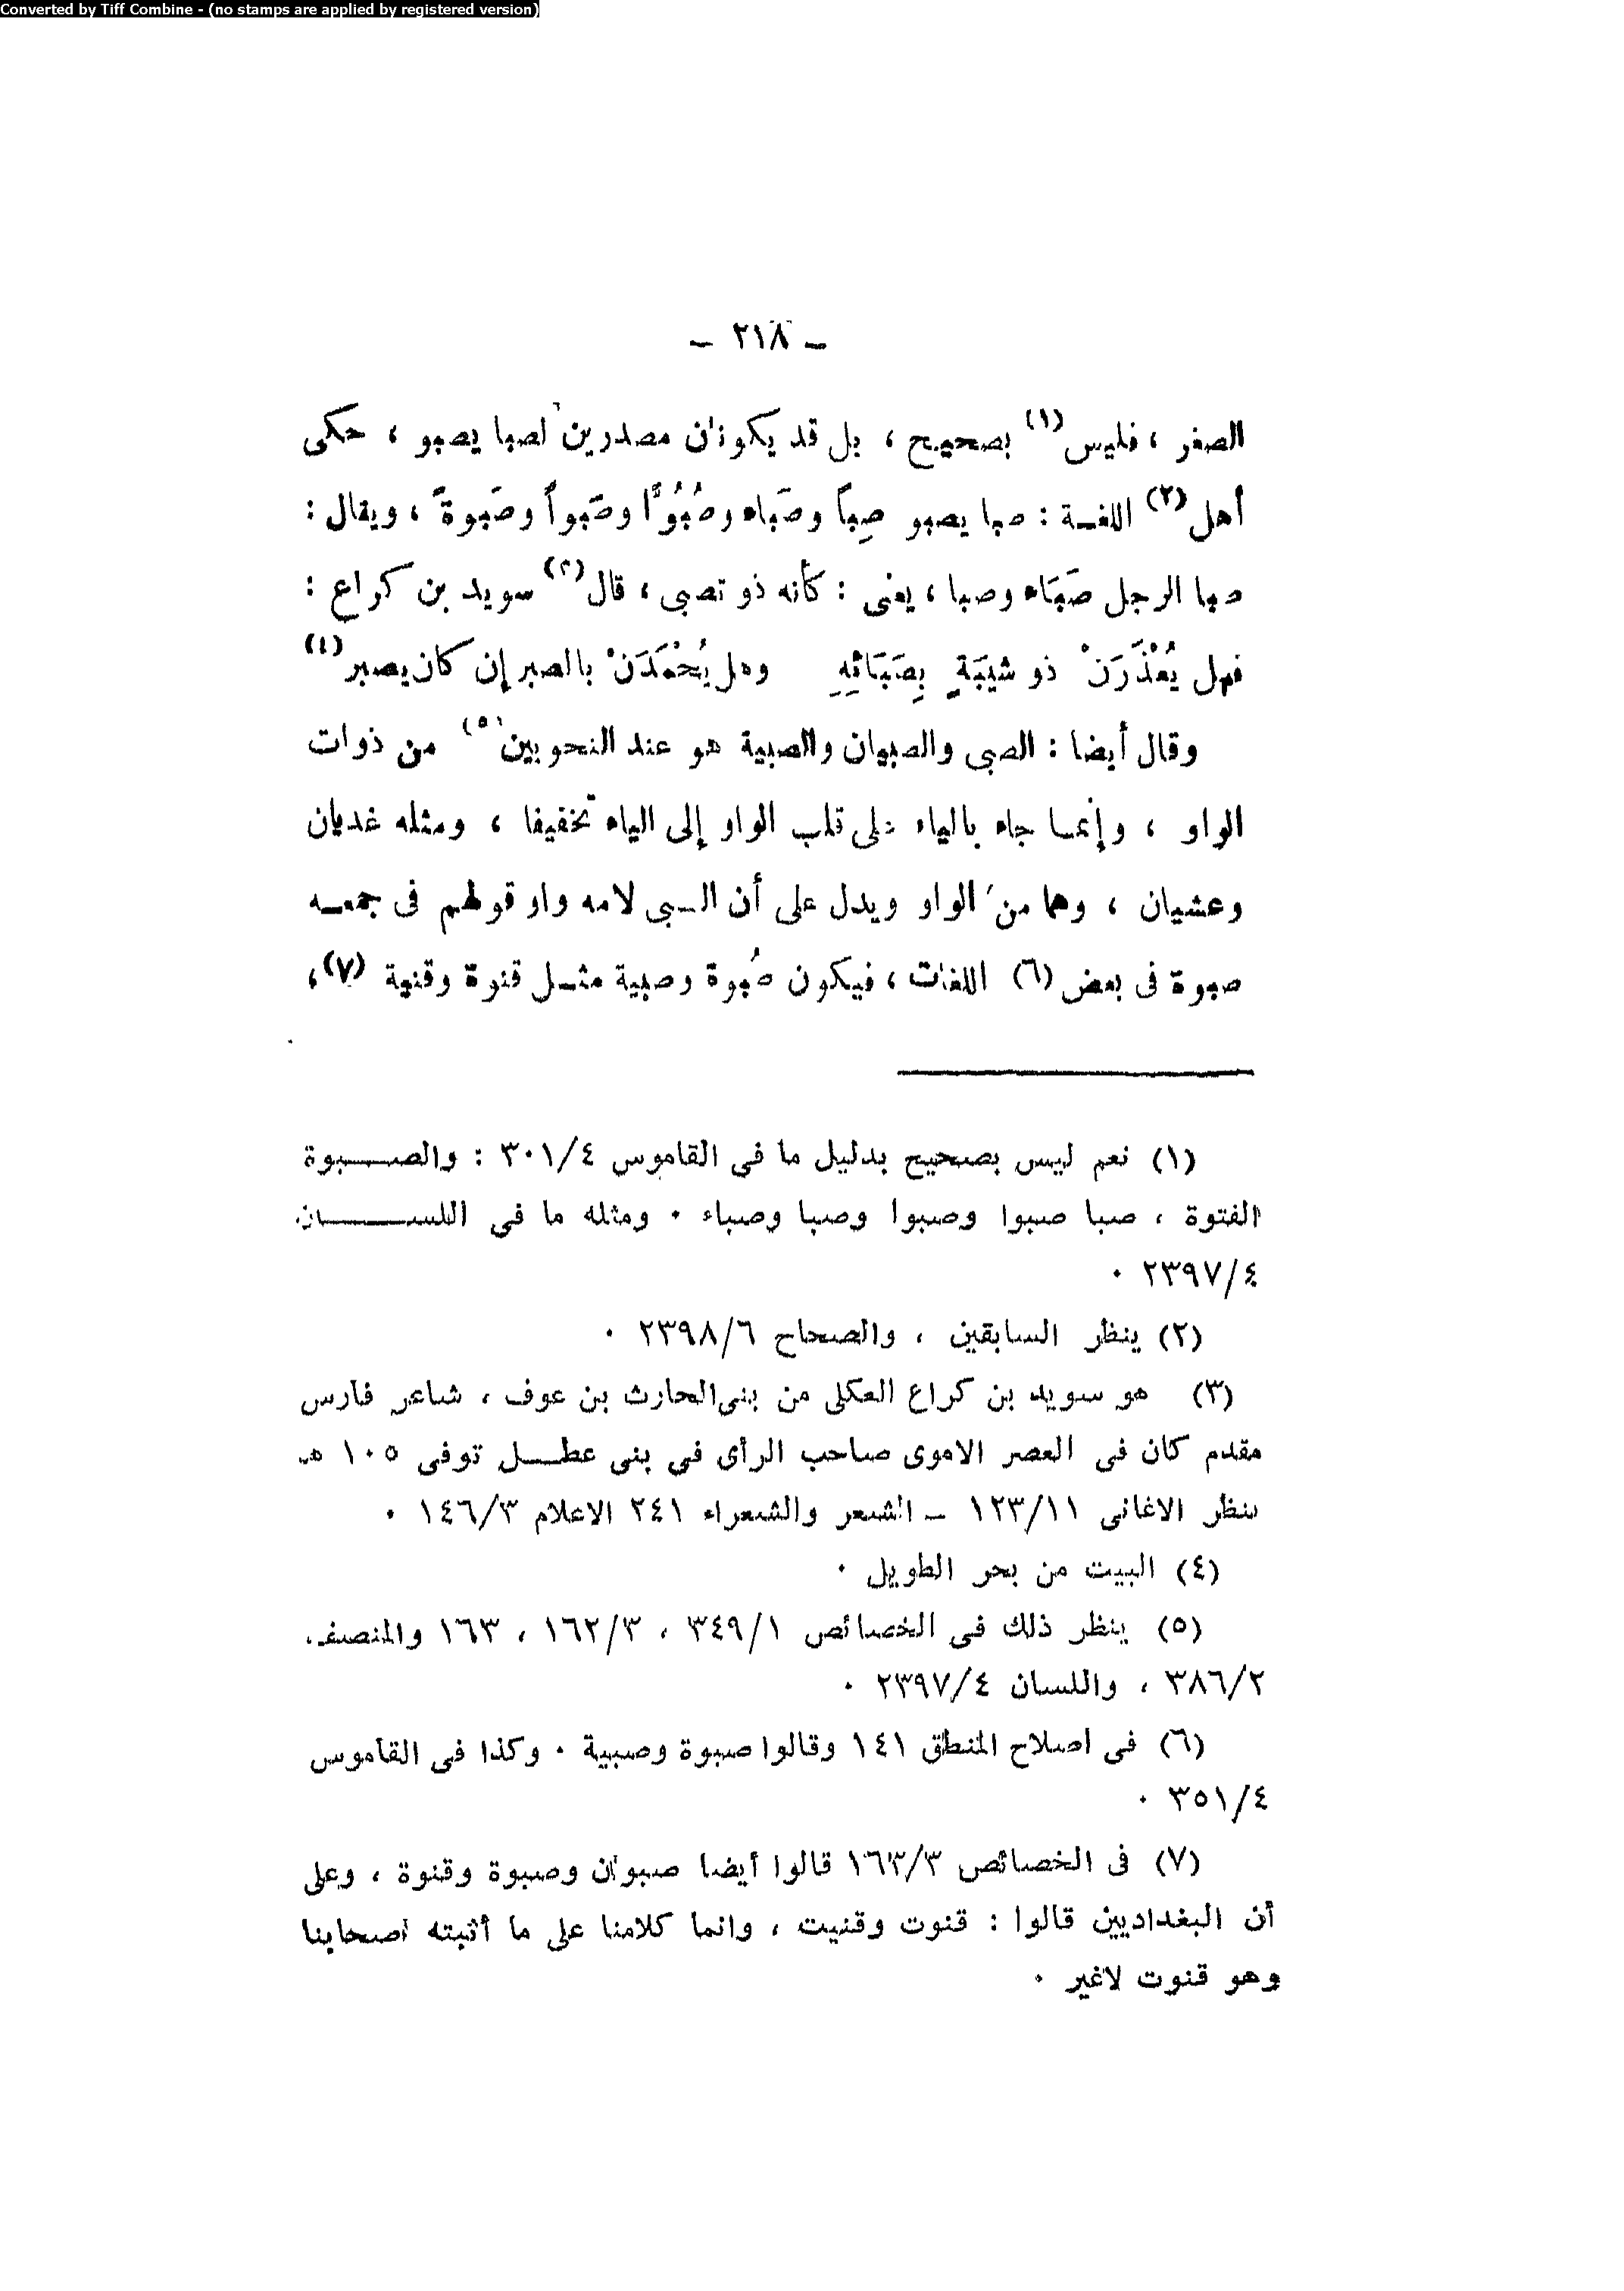 Converted by Tiff Combine - (no stamps are applied by registered version)
ـ ٢١٨ ـ
الصغر ، فليس (١) بصحيح ، بل قد يكونان مصدرين لصبا يصبو ، حكى
أهل (٢) اللغـة : صبا يصبو صِباً وصَباء وصُبُوًّا وصَبواً وصَبوةً ، ويقال :
صبا الرجل صَبَاء وصبا ، يعنى : كأنه ذو تصبى ، قال (٣) سويد بن كراع :
فهل يُعْذَرَنْ ذو شيبَةٍ بِصَبَائهِ وهل يُحْمَدَنْ بالصبر إن كان يصبر (٤)
وقال أيضا : الصبى والصبيان والصبية هو عند النحويين (٥) من ذوات
الواو ، وإنمـا جاء بالياء على قلب الواو إلى الياء تخفيفا ، ومثله غديان
وعشيان ، وهما من الواو ويدل على أن الصبى لامه واو قولهم فى جمعـه
صبوة فى بعض (٦) اللغات ، فيكون صُبوة وصبية مثـل قنوة وقنية (٧) ،
(١) نعم ليس بصحيح بدليل ما فى القاموس ٣٠١/٤ : والصـــبوة
الفتوة ، صبا صبوا وصبوا وصبا وصباء . ومثله ما فى اللســـان
٢٣٩٧/٤ .
(٢) ينظر السابقين ، والصحاح ٢٣٩٨/٦ .
(٣) هو سويد بن كراع العكلى من بنى الحارث بن عوف ، شاعر فارس
مقدم كان فى العصر الاموى صاحب الرأى فى بنى عطـــل توفى ١٠٥ هـ
ينظر الاغانى ١٢٣/١١ ـ الشعر والشعراء ٢٤١ الاعلام ١٤٦/٣ .
(٤) البيت من بحر الطويل .
(٥) ينظر ذلك فى الخصائص ٣٤٩/١ ، ١٦٢/٣ ، ١٦٣ والمنصف
٣٨٦/٢ ، واللسان ٢٣٩٧/٤ .
(٦) فى اصلاح المنطق ١٤١ وقالوا صبوة وصبية . وكذا فى القاموس
٣٥١/٤ .
(٧) فى الخصائص ١٦٣/٣ قالوا أيضا صبوان وصبوة وقنوة ، وعلى
أن البغداديين قالوا : قنوت وقنيت ، وانما كلامنا على ما أثبته اصحابنا
وهو قنوت لاغير .